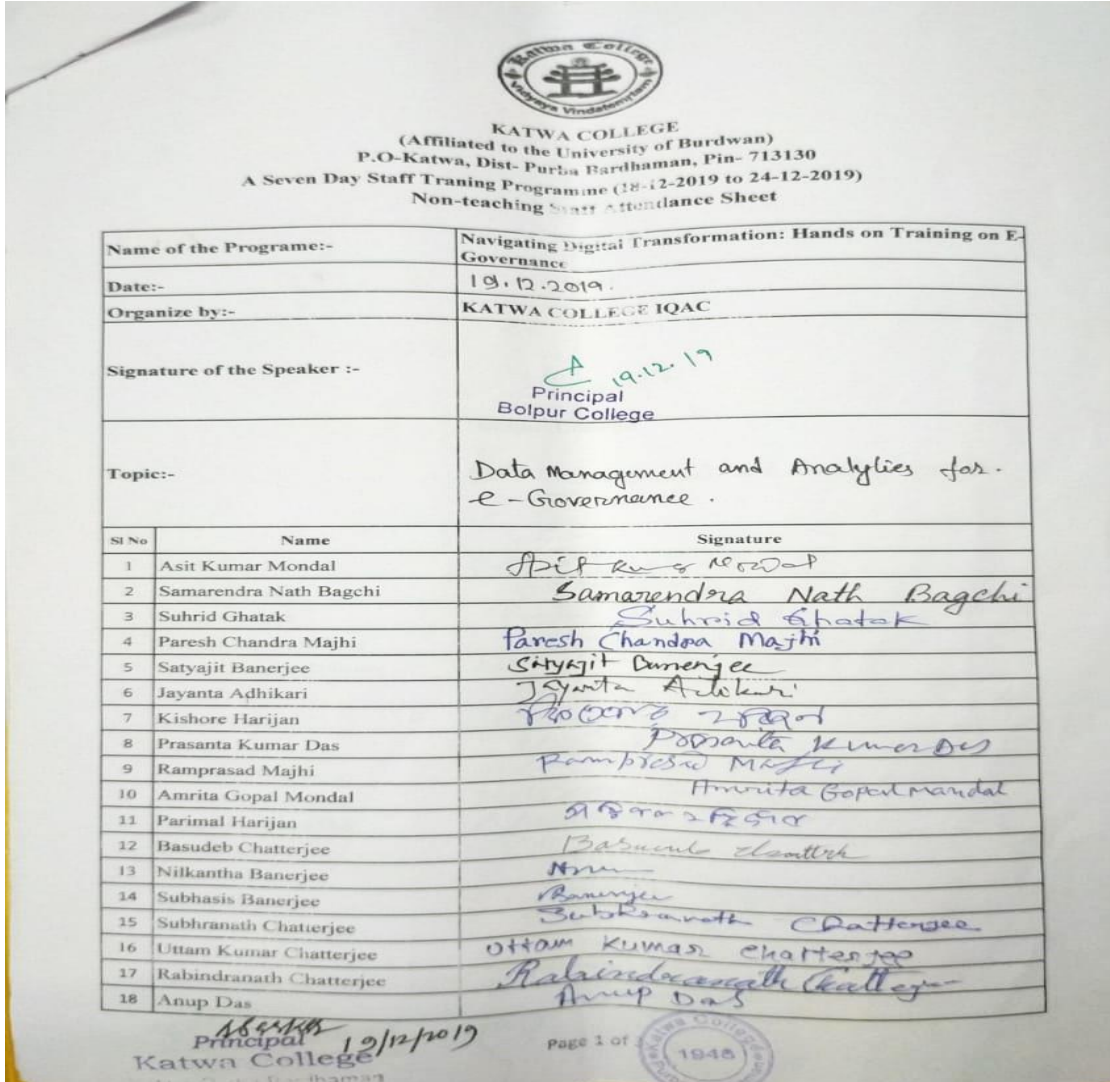 Katwa College
Vidyaya Vindatemritam
KATWA COLLEGE
(Affiliated to the University of Burdwan)
P.O-Katwa, Dist- Purba Bardhaman, Pin- 713130
A Seven Day Staff Traning Programme (18-12-2019 to 24-12-2019)
Non-teaching Staff Attendance Sheet
Name of the Programe:- Navigating Digital Transformation: Hands on Training on E-
Governance
Date:- 19.12.2019.
Organize by:- KATWA COLLEGE IQAC
Signature of the Speaker :- 19.12.19
Principal
Bolpur College
Topic:- Data Management and Analytics for.
e-Governance.
Sl No Name Signature
1 Asit Kumar Mondal Asit Kumar Mondal
2 Samarendra Nath Bagchi Samarendra Nath Bagchi
3 Suhrid Ghatak Suhrid Ghatak
4 Paresh Chandra Majhi Paresh Chandra Majhi
5 Satyajit Banerjee Satyajit Banerjee
6 Jayanta Adhikari Jayanta Adikari
7 Kishore Harijan
8 Prasanta Kumar Das Prosanta Kumar Das
9 Ramprasad Majhi Ramprasad Majhi
10 Amrita Gopal Mondal Amrita Gopal Mandal
11 Parimal Harijan
12 Basudeb Chatterjee
13 Nilkantha Banerjee
14 Subhasis Banerjee Banerjee
15 Subhranath Chatterjee Subhranath Chatterjee
16 Uttam Kumar Chatterjee Uttam Kumar Chatterjee
17 Rabindranath Chatterjee Rabindranath Chatterjee
18 Anup Das Anup Das
19/12/2019
Principal
Katwa College
Page 1 of
Katwa College
1948